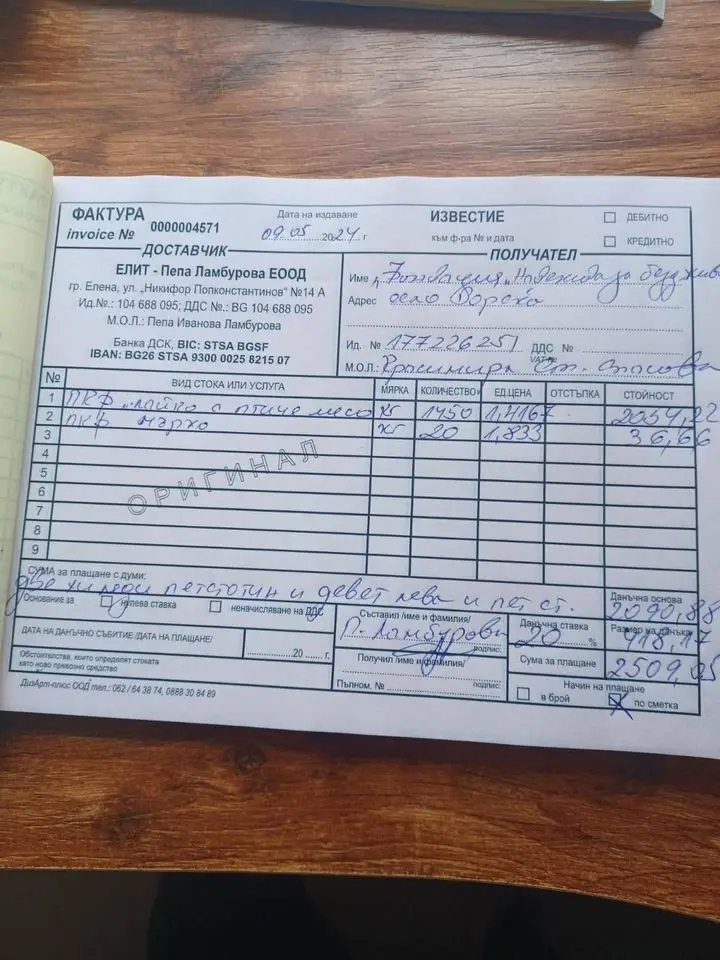 ФАКТУРА
invoice № 0000004571
Дата на издаване
09.05 2024 г
ИЗВЕСТИЕ
към ф-ра № и дата
ДЕБИТНО
КРЕДИТНО
ДОСТАВЧИК
ЕЛИТ - Пепа Ламбурова ЕООД
гр. Елена, ул. „Никифор Попконстантинов" №14 А
Ид.№.: 104 688 095; ДДС №.: BG 104 688 095
М.О.Л.: Пепа Иванова Ламбурова
Банка ДСК, BIC: STSA BGSF
IBAN: BG26 STSA 9300 0025 8215 07
ПОЛУЧАТЕЛ
Име „Фондация „Надежда за
Адрес село
Ид. № 177226251 ДДС №
VAT №
М.О.Л.: Красимира Ст. Спасова
№ ВИД СТОКА ИЛИ УСЛУГА МЯРКА КОЛИЧЕСТВО ЕД.ЦЕНА ОТСТЪПКА СТОЙНОСТ
1 ПКФ „Лайко с птиче месо кг 1450 1,4167 2054,22
2 ПКФ Мархо кг 20 1,833 36,66
3
4
5
6
7
8
9
ОРИГИНАЛ
СУМА за плащане с думи:
две хиляди петстотин и девет лева и пет ст.
Данъчна основа
2090,88
Основание за нулева ставка неначисляване на ДДС
Съставил /име и фамилия/
П. Ламбурова
подпис:
Данъчна ставка
20 %
Размер на данъка
418,17
ДАТА НА ДАНЪЧНО СЪБИТИЕ /ДАТА НА ПЛАЩАНЕ/
20 г.
Получил /име и фамилия/
Сума за плащане
2509,05
Обстоятелства, които определят стоката
като ново превозно средство
Пълном. № подпис:
Начин на плащане
в брой по сметка
ДизАрт-плюс ООД тел.: 062 / 64 38 74, 0888 30 84 89